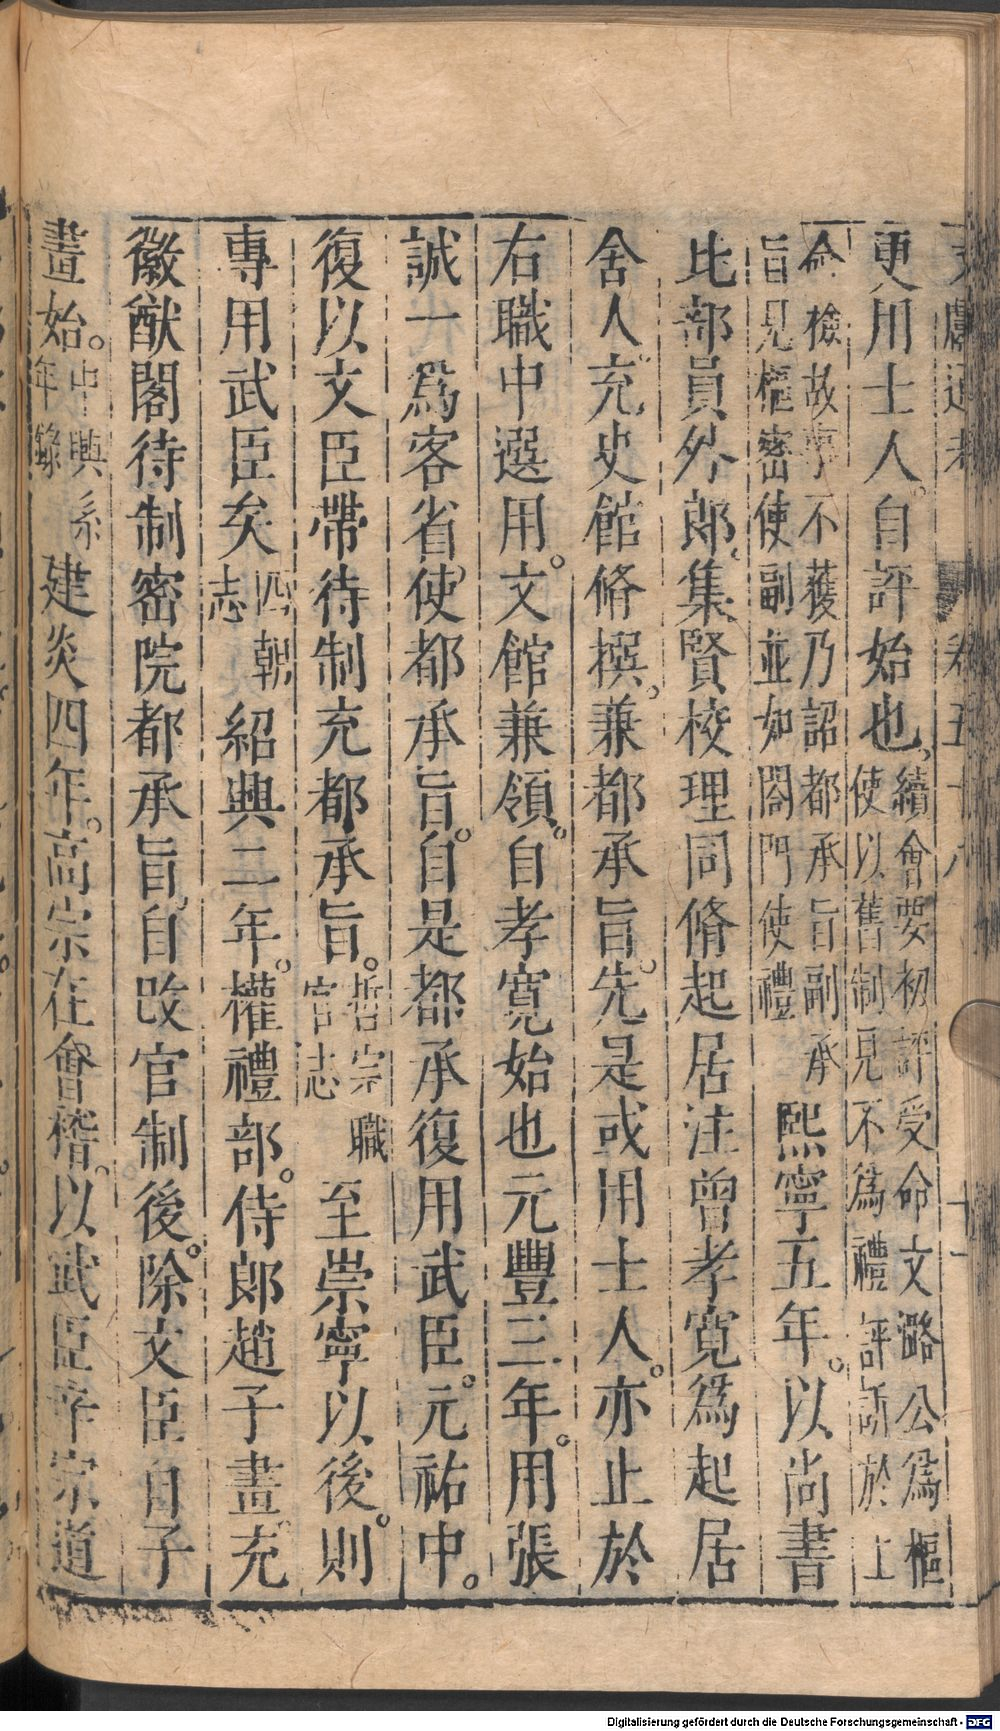 文獻通考　卷五十八　十一
更用士人。自評始也，續會要初評受命文潞公爲樞
使以舊制見不爲禮評訴於上
命檢故事不獲乃詔都承旨副承
旨見樞密使副並如閤門使禮　熙寧五年。以尚書
比部員外郎，集賢校理同脩起居注曾孝寬爲起居
舍人，充史館脩撰，兼都承旨。先是或用士人。亦止於
右職中選用。文館兼領。自孝寬始也元豐三年。用張
誠一爲客省使，都承旨。自是都承復用武臣。元祐中。
復以文臣帶待制充都承旨。哲宗職官志　至崇寧以後。則
專用武臣矣四朝志　紹興二年。權禮部。侍郎趙子畫充
徽猷閣待制密院都承旨，自改官制後。除文臣自子
畫始。中興系年錄　建炎四年。高宗在會稽。以武臣辛宗道
Digitalisierung gefördert durch die Deutsche Forschungsgemeinschaft - DFG